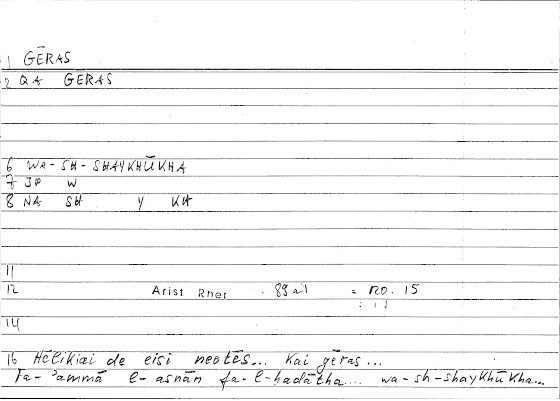 1 GĒRAS
2 QA GERAS
6 WA-SH-SHAYKHŪKHA
7 JP W
8 NA SH Y KH
11
12 Arist Rhet . 89a1 = no. 15
14
16 Hēlikiai de eisi neotēs... kai gēras...
Fa-'ammā l-asnān fa-l-ḥadātha... wa-sh-shaykhūkha...